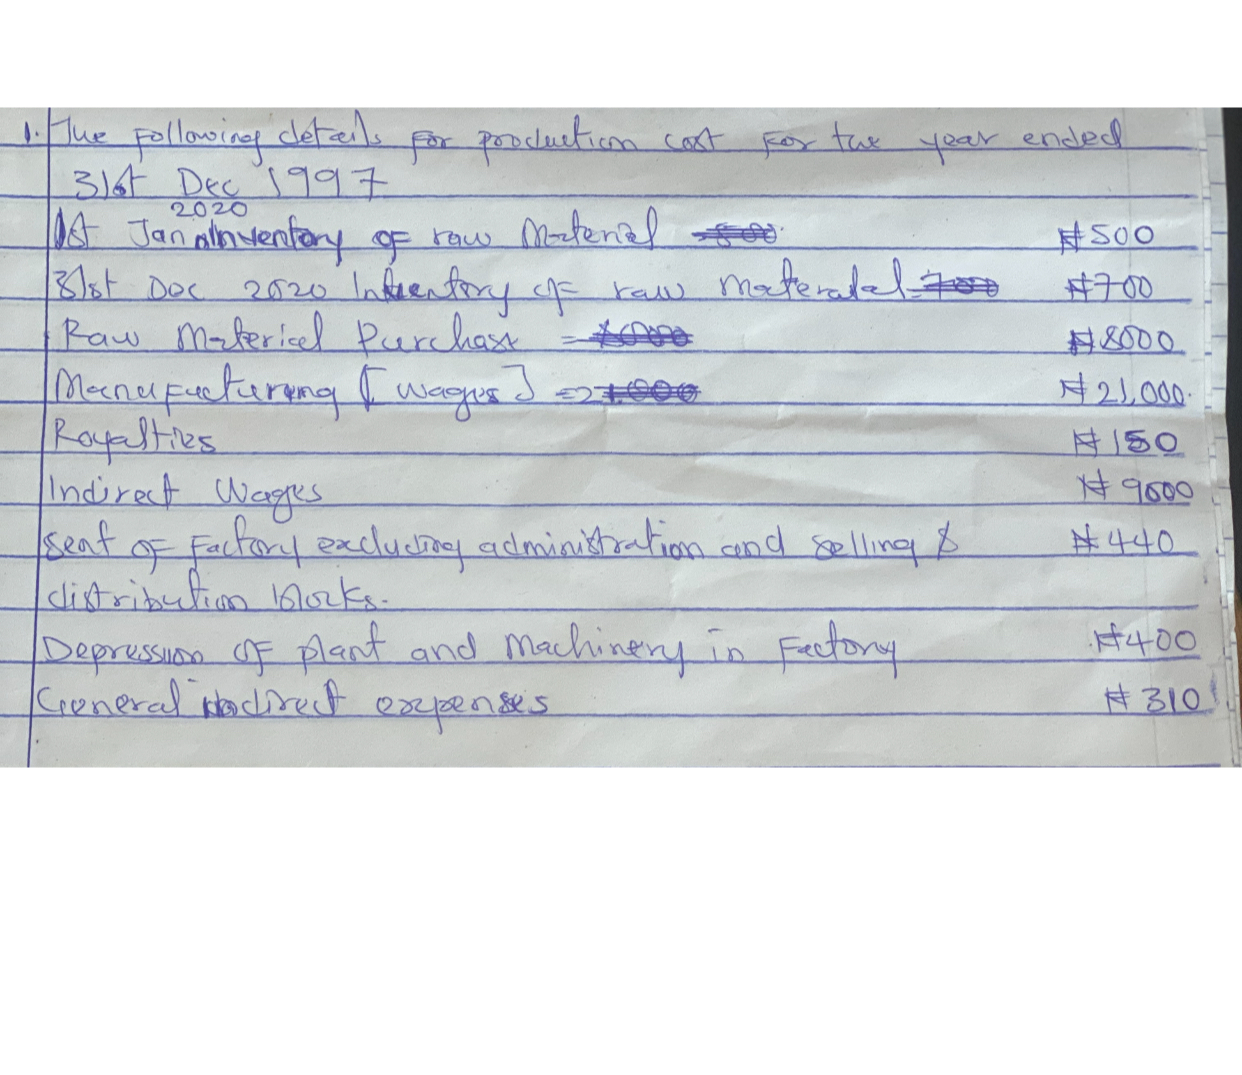 1. The following details for production cost for the year ended
31st Dec 1997
2020
1st Jan Inventory of raw Material ₦500
31st Dec 2020 Inventory of raw materatal ₦700
Raw Material Purchase = ₦8000
Manufacturing [wages] = ₦21,000
Royalties ₦150
Indirect Wages ₦9000
Sent of Factory excluding administration and selling & ₦440
distribution blocks.
Depression of plant and Machinery in Factory ₦400
General indirect expenses ₦310